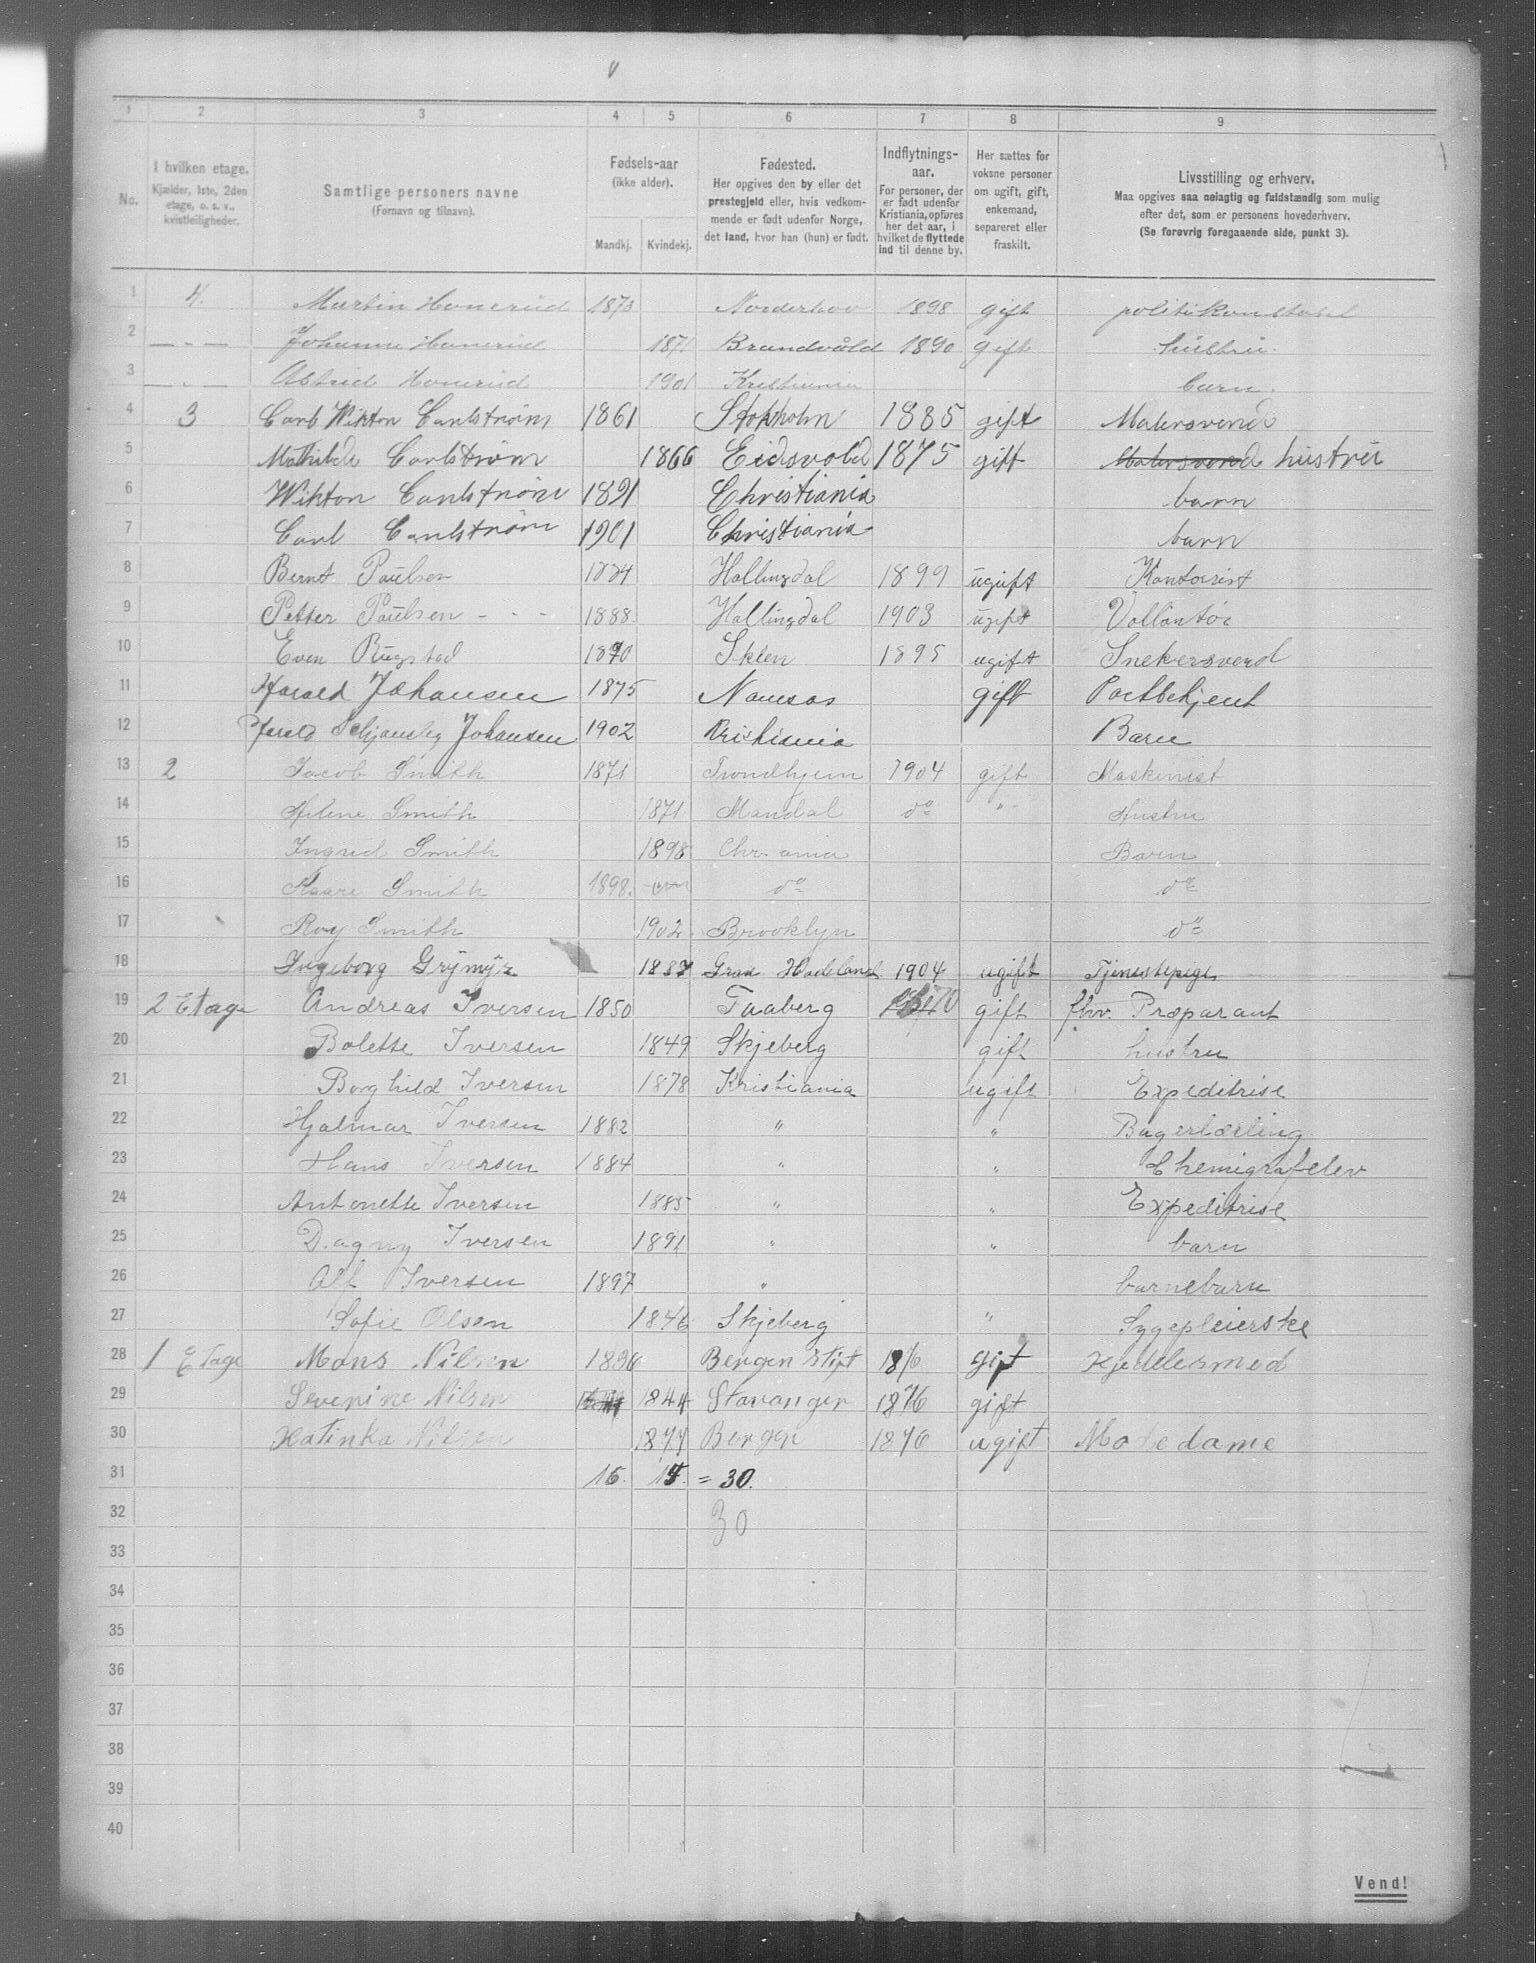 1 2 3 4 5 6 7 8 9
No. I hvilken etage. Kjælder, 1ste, 2den etage, o. s. v., kvistleiligheder. Samtlige personers navne (Fornavn og tilnavn). Fødsels-aar (ikke alder). Mandkj. Kvindekj. Fødested. Her opgives den by eller det prestegjeld eller, hvis vedkommende er født udenfor Norge, det land, hvor han (hun) er født. Indflytnings-aar. For personer, der er født udenfor Kristiania, opføres her det aar, i hvilket de flyttede ind til denne by. Her sættes for voksne personer om ugift, gift, enkemand, separeret eller fraskilt. Livsstilling og erhverv. Maa opgives saa nøiagtig og fuldstændig som mulig efter det, som er personens hovederhverv. (Se forøvrig foregaaende side, punkt 3).
1 4. Martin Honerud 1873 Norderhov 1898 gift politikonstabel
2 — " — Johanne Honerud 1871 Brandvåld 1890 gift hustru.
3 — " — Astrid Honerud 1901 Kristiania barn.
4 3 Carl Wikton Carlstrøm 1861 Stokholm 1885 gift Malersvend
5 Mathilde Carlstrøm 1866 Eidsvold 1875 gift Malersvend hustru
6 Wikton Carlstrøm 1891 Christiania barn
7 Carl Carlstrøm 1901 Christiania barn
8 Bernt Paulsen 1884 Hallingdal 1899 ugift Kontorist
9 Petter Paulsen 1888 Hallingdal 1903 ugift Vollontør
10 Even Rugstad 1870 Skien 1895 ugift Snekersvend
11 Harald Johansen 1875 Namsos gift Postbetjent
12 Harald Johansen 1902 Kristiania Barn
13 2 Jacob Smith 1871 Trondhjem 1904 gift Maskinist
14 Helene Smith 1871 Mandal do " Hustru
15 Ingrid Smith 1898 Chr.ania Barn
16 Kaare Smith 1898. do do
17 Roy Smith 1902 Brooklyn do
18 Ingeborg Grymyr 1887 Gran Hadeland 1904 ugift Tjenestepige
19 2 Etage Andreas Iversen 1850 Faaberg 1870 gift fhv. Præparant
20 Bolette Iversen 1849 Skjeberg gift hustru
21 Borghild Iversen 1878 Kristiania ugift Expeditrise
22 Hjalmar Iversen 1882 " " Bagerlærling
23 Hans Iversen 1884 " " Chemigrafelev
24 Antonette Iversen 1885 " " Expeditrise
25 Dagny Iversen 1891 " " barn
26 Alf Iversen 1897 " barnebarn
27 Sofie Olsen 1846 Skjeberg " Sygepleierske
28 1 Etage Mons Nilsen Bergen Stift 1876 gift Kjedelsmed
29 Severine Nilsen 1844 Stavanger 1876 gift
30 Katinka Nilsen 1877 1876 ugift Mode dame
31 15. 15. = 30.
32 30
33
34
35
36
37
38
39
40
Vend!